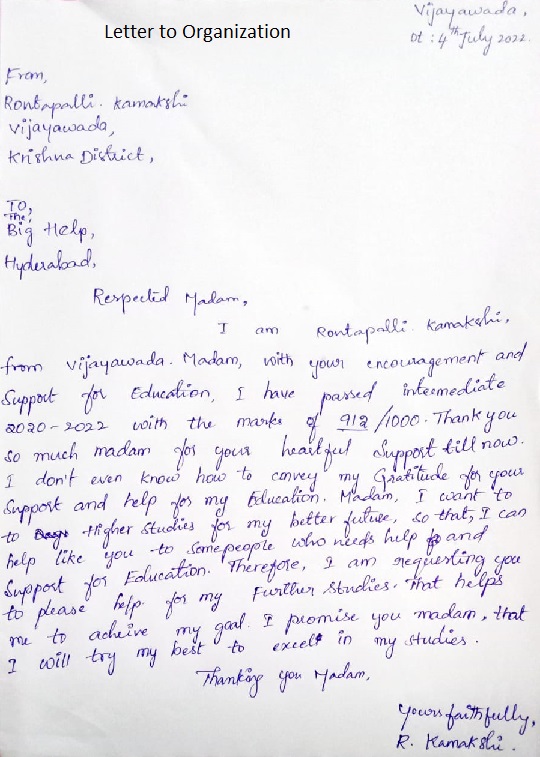 Vijayawada,
Dt : 4th July 2022.
Letter to Organization
From,
Rontapalli. Kamakshi
Vijayawada,
Krishna District,
TO,
The,
Big Help,
Hyderabad,
Respected Madam,
I am Rontapalli. Kamakshi,
from Vijayawada. Madam, with your encouragement and
Support for Education, I have passed intermediate
2020-2022 with the marks of 912/1000. Thank you
so much madam for your heartful Support till now.
I don't even know how to convey my Gratitude for your
Support and help for my Education. Madam, I want to
to Higher Studies for my better future, so that, I can
help like you to somepeople who needs help and
Support for Education. Therefore, I am requesting you
to please help for my Further Studies. That helps
me to acheive my goal. I promise you madam, that
I will try my best to excel in my studies.
Thanking you Madam,
Yours faithfully,
R. Kamakshi.